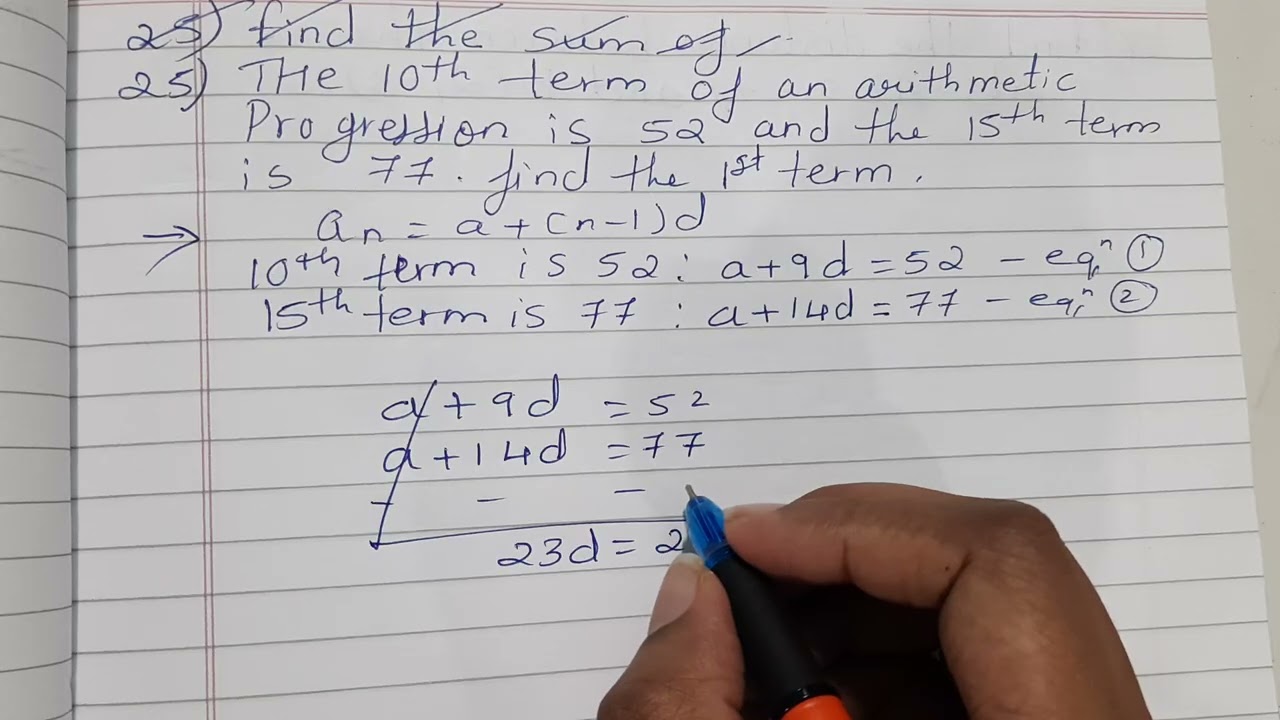 25) find the sum of
25) THe 10th term of an arithmetic
Progression is 52 and the 15th term
is 77. find the 1st term.
an = a+(n-1)d
10th term is 52: a+9d=52 - eqn ①
15th term is 77: a+14d=77 - eqn ②
a+9d = 52
a+14d = 77
- - -
23d = 2